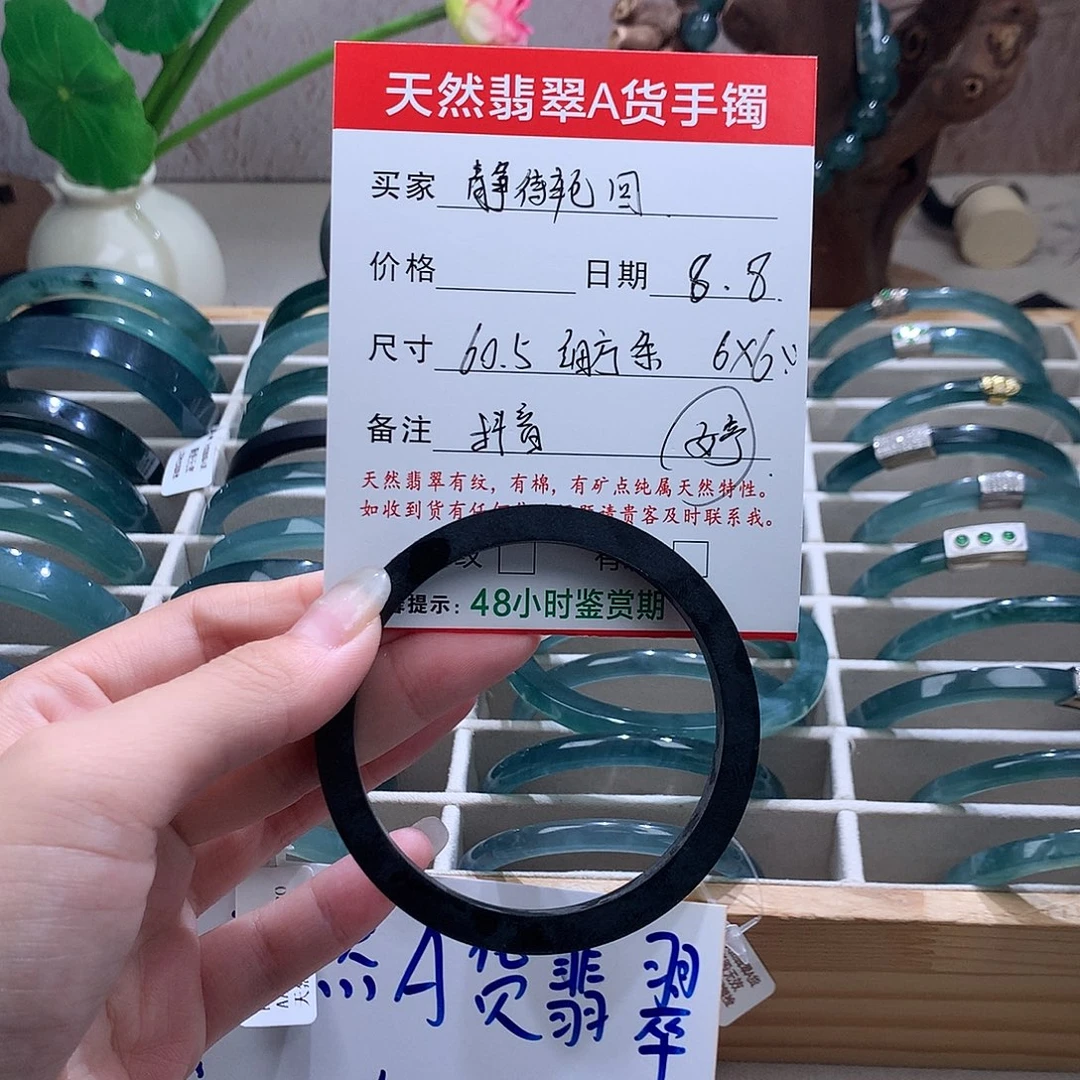 天然翡翠A货手镯
买家 静待轮回
价格 日期 8.8
尺寸 60.5 细方条 6×6.
备注 抖音 婷
天然翡翠有纹，有棉，有矿点纯属天然特性。
如收到货有任何 请贵客及时联系我。
纹 有
提示：48小时鉴赏期
然A货翡翠